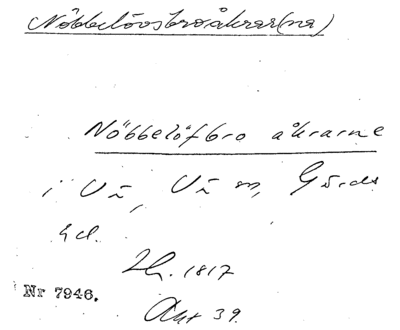 Nöbbelövsbroåkrar(na)
Nöbbelöfbro åkrarne
i Vä, Vä sn, Gärds
hd.
Lh. 1817
Nr 7946.
Akt 39.